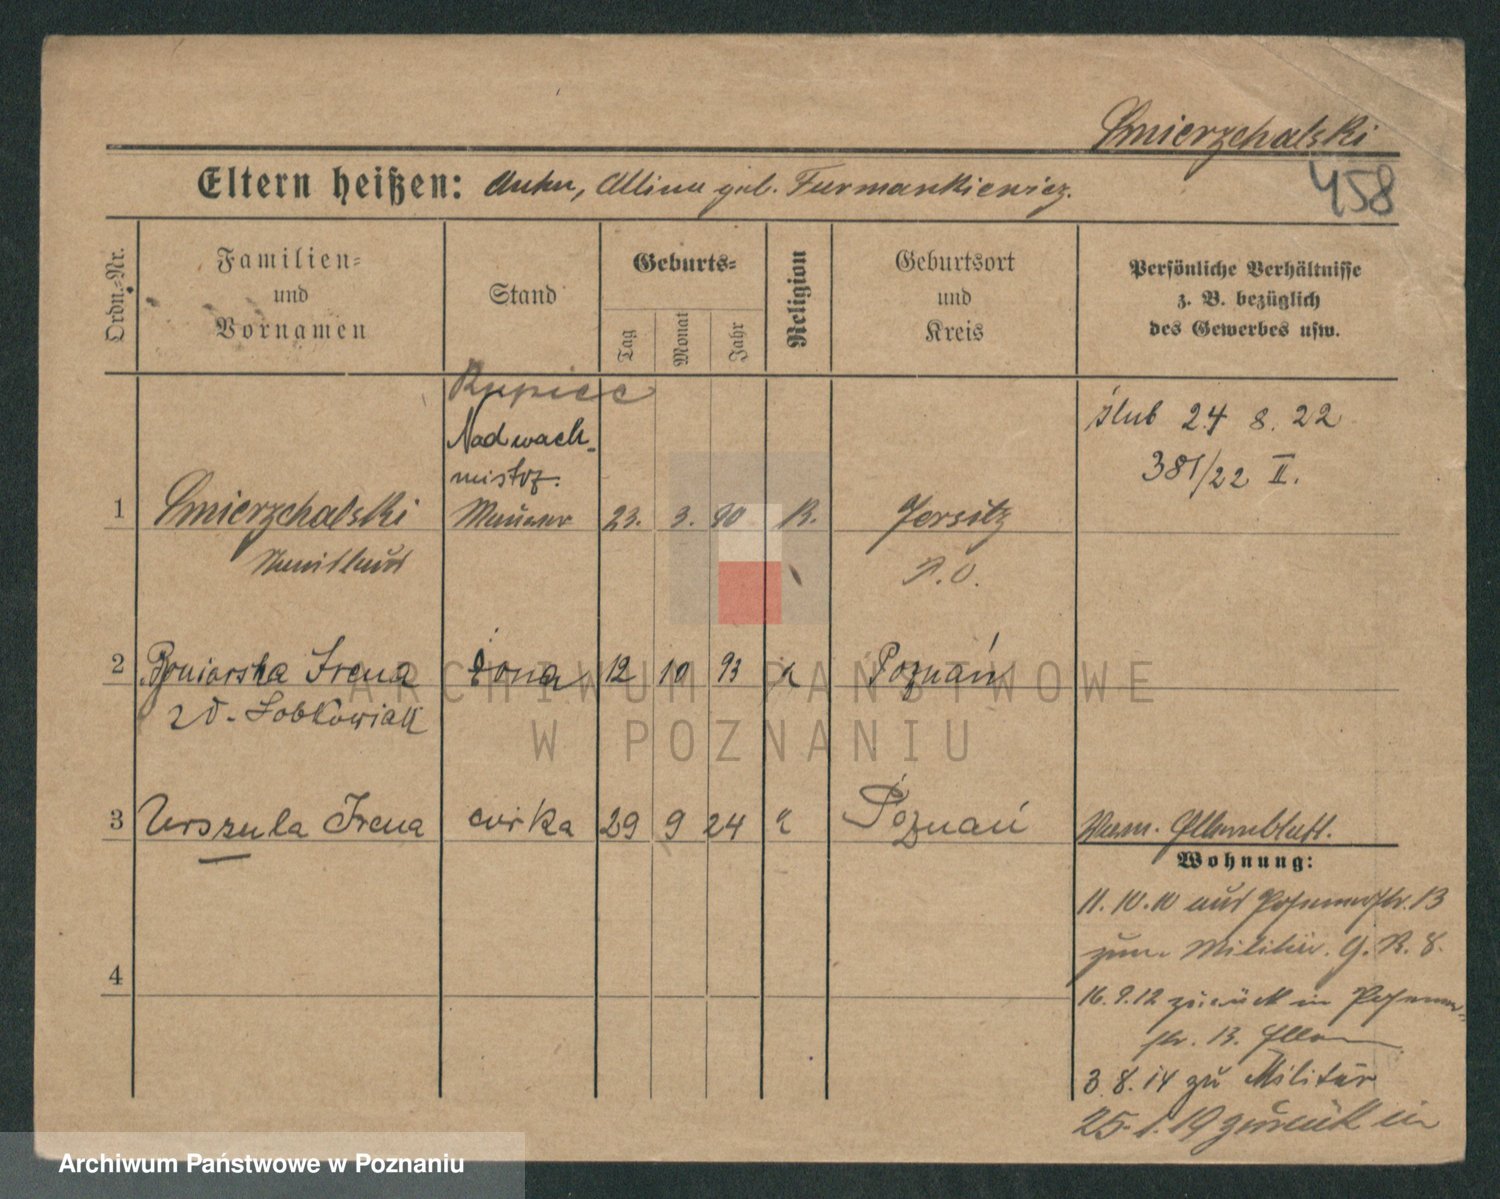 Smierzchalski
458
Eltern heißen: Anton, geb. Furmankiewicz.
Ordn.-Nr.
Familien- und Vornamen
Stand
Geburts-
Tag
Monat
Jahr
Religion
Geburtsort und Kreis
Persönliche Verhältnisse
z. B. bezüglich
des Gewerbes usw.
Kupiec
Nadwach-
mistrz.
ślub 24 8. 22
381/22 II.
1 Smierzchalski Maurer 23. 3. 90 K. Jersitz
P. O.
2 Irena żona 12 10 93 k Poznań
zd. Lobkowiak
3 Urszula Irena córka 29 9 24 k Poznań
Elternblatt.
Wohnung:
11. 10. 10 aus Posenerstr. 13
zum Militär. G. R. 8.
4
16. 9. 12 zurück in Posener-
str. 13. Eltern
3. 8. 14 zu Militär
25. 1. 19 zurück in
ARCHIWUM PAŃSTWOWE
W POZNANIU
Archiwum Państwowe w Poznaniu